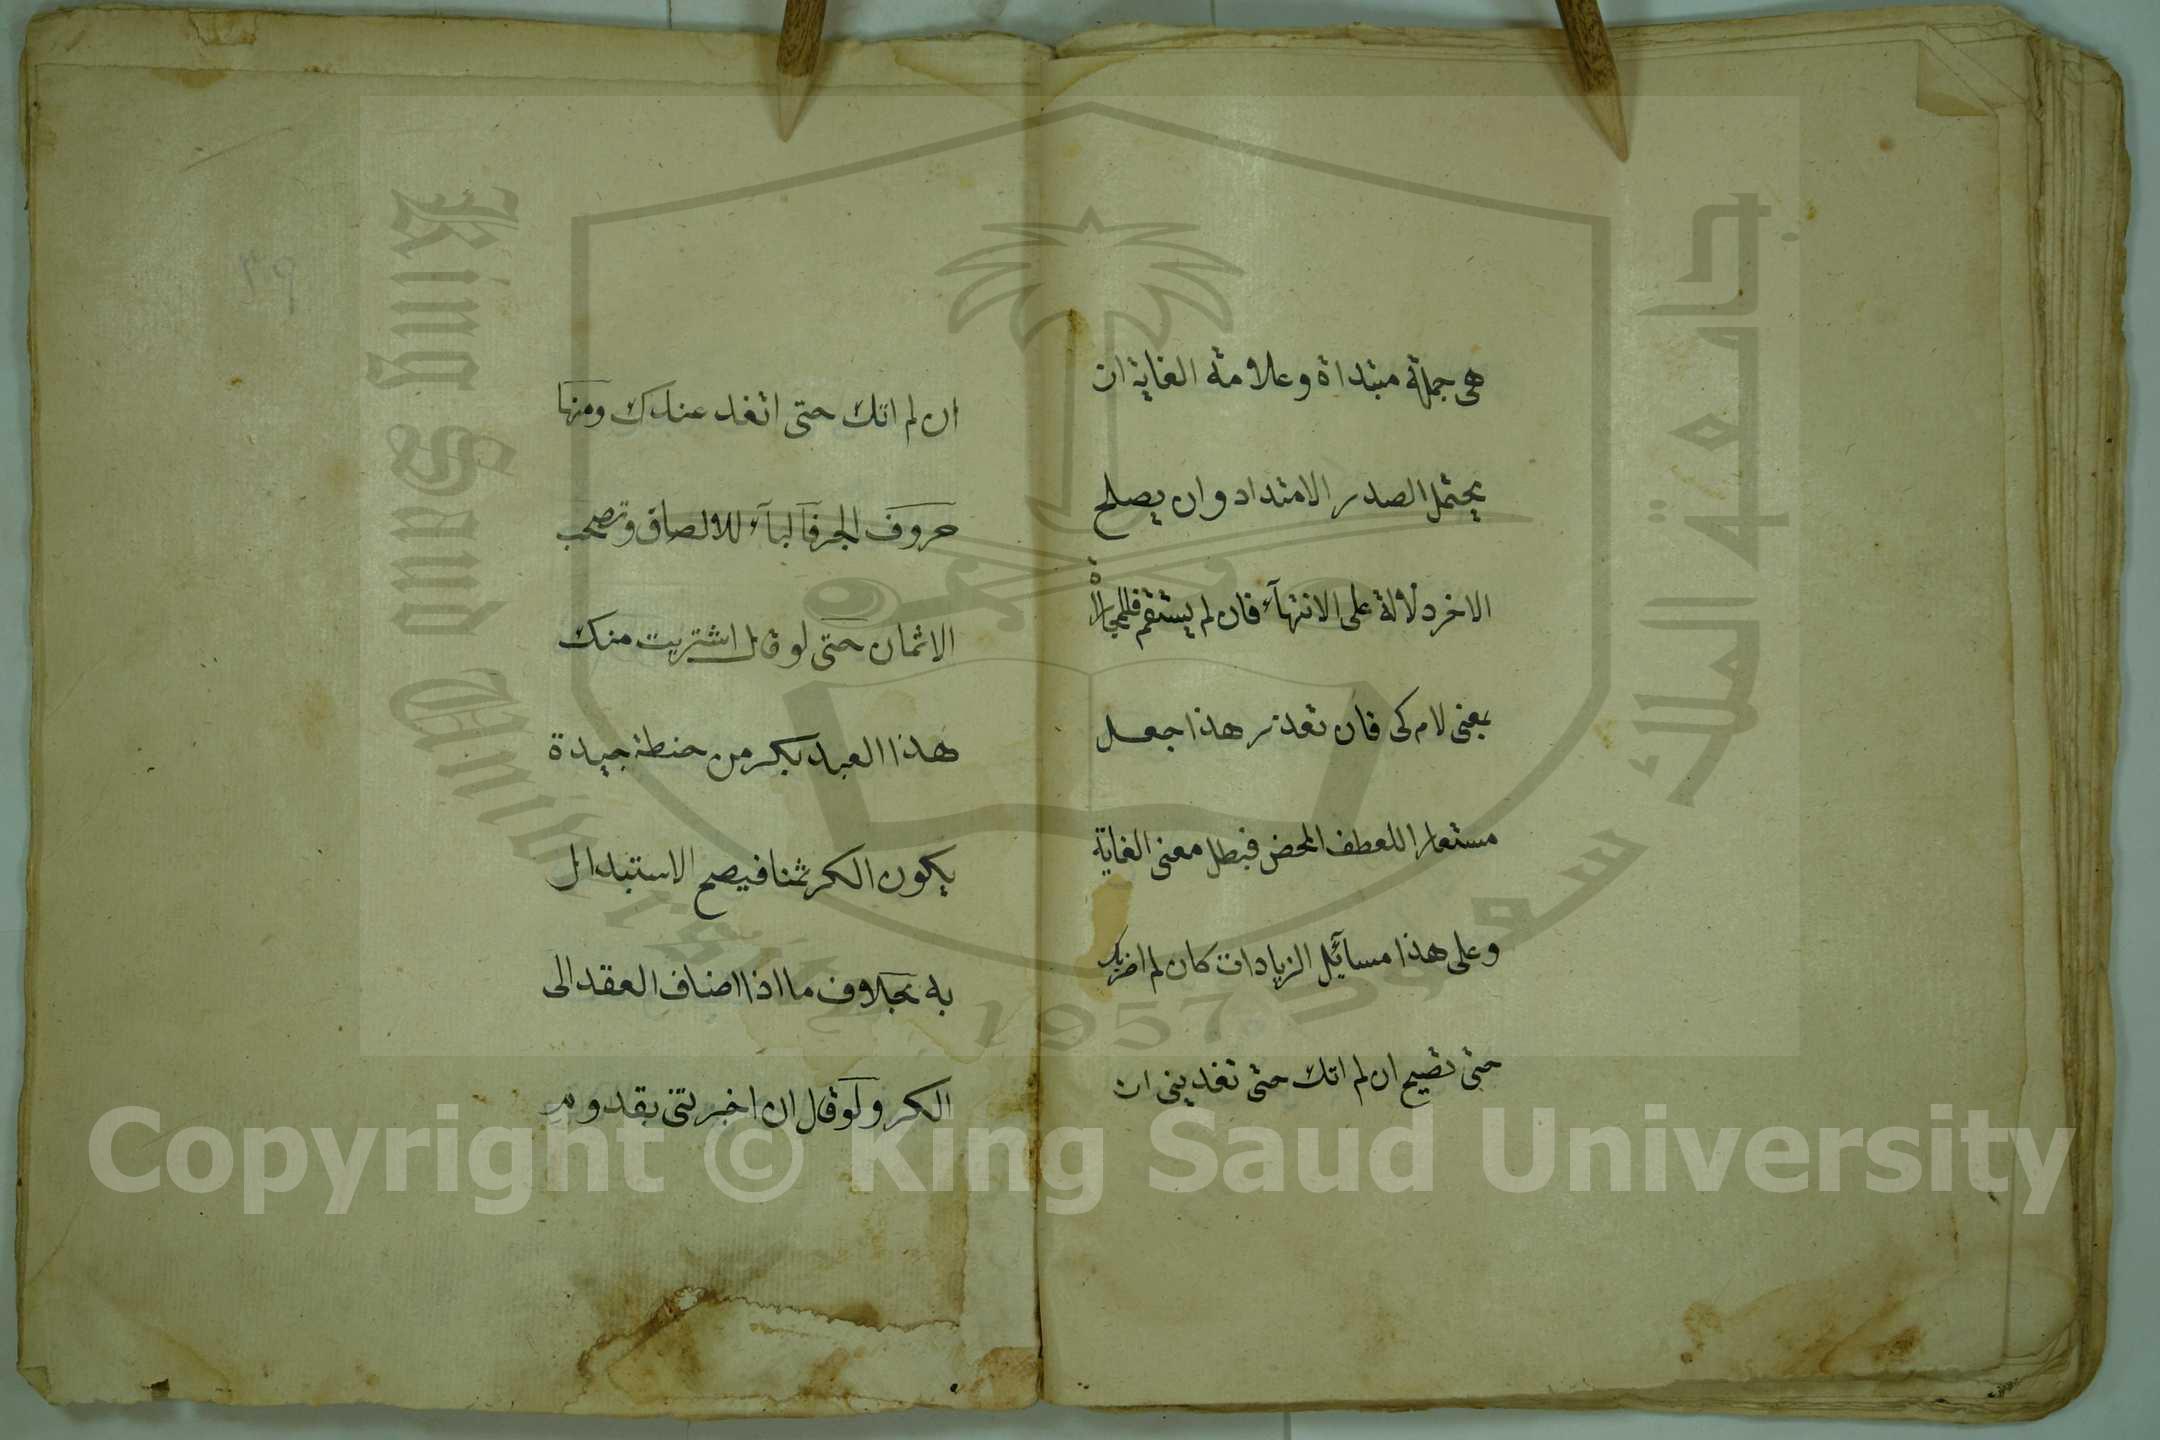 هى جملة مبتداة وعلامة الغاية ان
يحتمل الصدر الامتداد وان يصلح
الاخر دلالة على الانتهآء فان لم يستقم فللمجازاة
بمعنى لام كى فان تعذر هذا جعل
مستعارا للعطف المحض فبطل معنى الغاية
وعلى هذا مسآئيل الزيادات كان لم اضربك
حتى تصيح ان لم اتك حتى تغدينى ان
ان لم اتك حتى اتغد عندك ومنها
حروف الجر فالبآء للالصاق وتصحب
الاثمان حتى لو قال اشتريت منك
هذا العبد بكر من حنطة جيدة
يكون الكر ثمنا فيصح الاستبدال
به بخلاف ما اذا اضاف العقد الى
الكر ولو قال ان اخبرتنى بقدوم
٣٩
King Saud University
جامعة الملك سعود
1957
Copyright © King Saud University